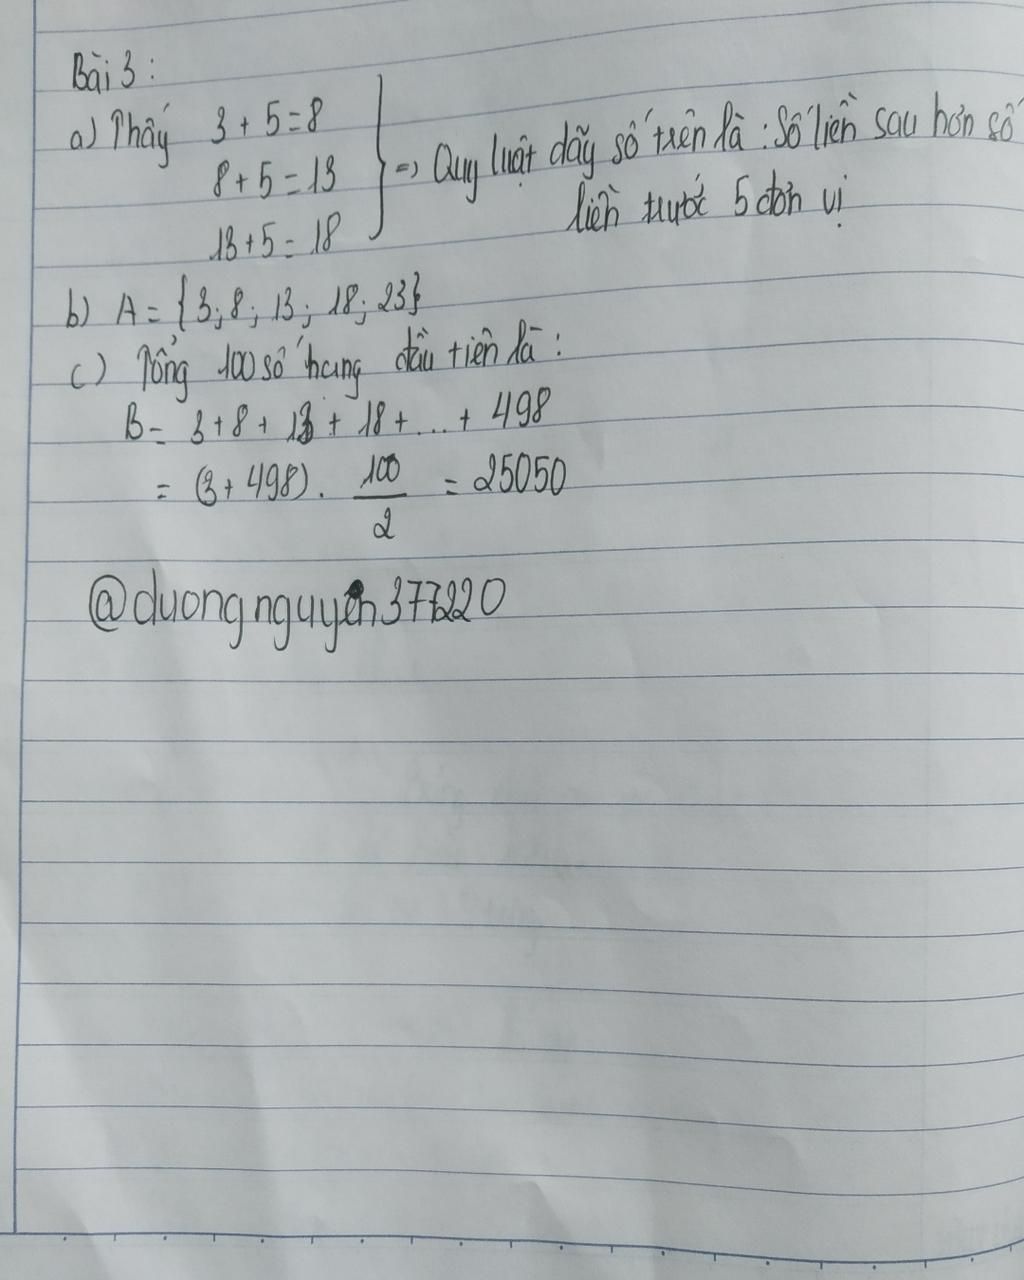 Bài 3 :
a) Thấy 3 + 5 = 8
8 + 5 = 13
13 + 5 = 18
=> Quy luật dãy số trên là : Số liền sau hơn số
liền trước 5 đơn vị
b) A = {3; 8; 13; 18; 23}
c) Tổng 100 số hạng đầu tiên là :
B = 3 + 8 + 13 + 18 + ... + 498
= (3 + 498) . 100/2 = 25050
@duongnguyen377220